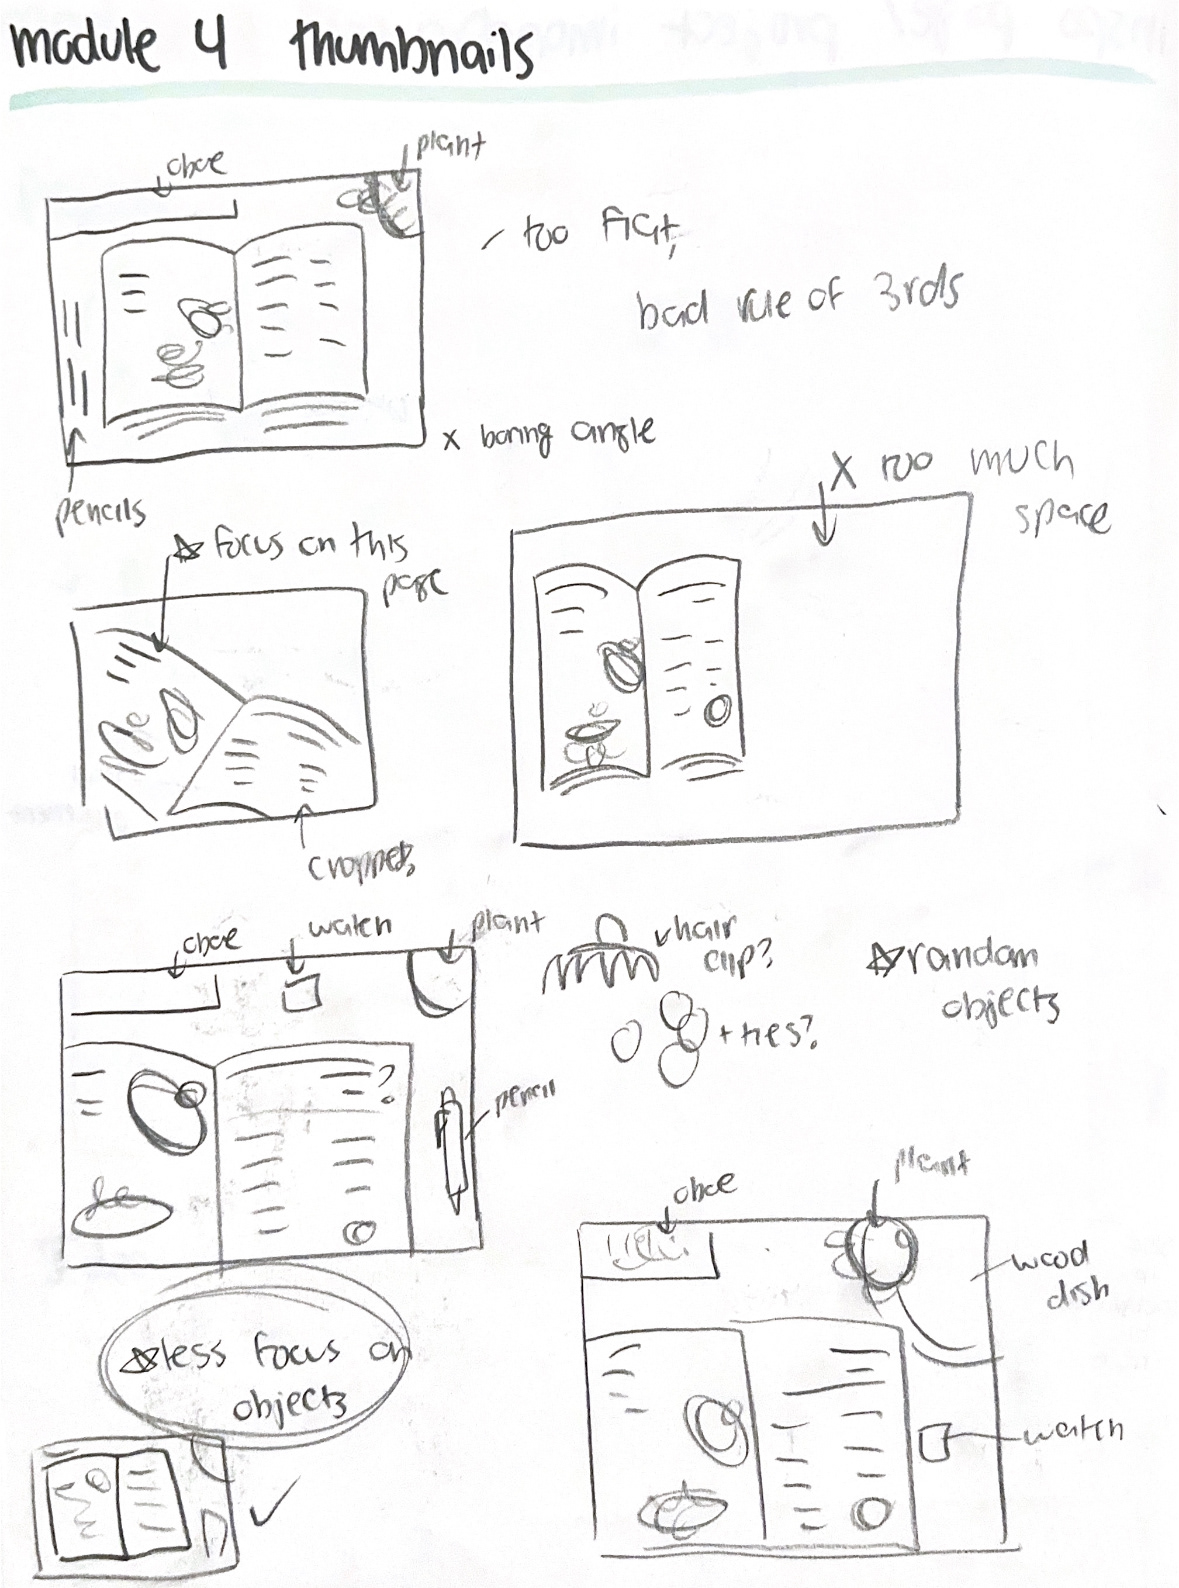 module 4 thumbnails
oboe
plant
- too flat,
bad rule of 3rds
x boring angle
pencils
x too much
space
☆ focus on this
page
cropped
oboe
watch
plant
hair
clip?
☆ random
objects
+ ties?
?
pencil
plant
oboe
wood
dish
☆ less focus on
objects
watch